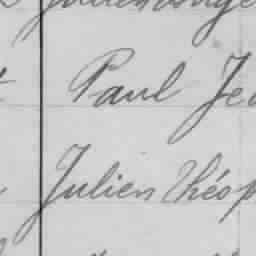 Paul Je
Julien Théop